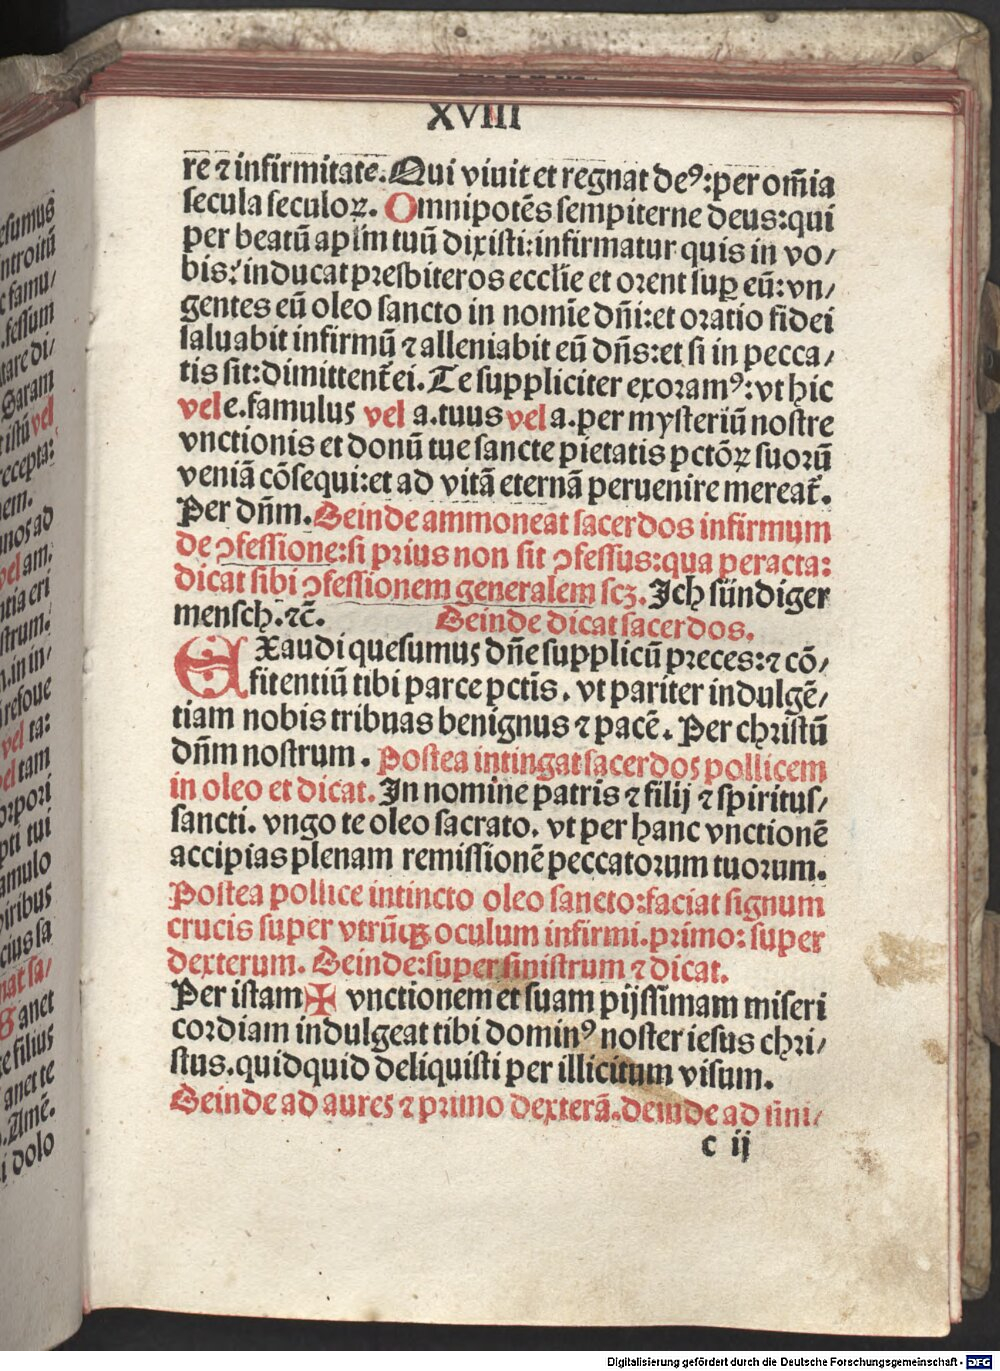 XVIII
re ⁊ infirmitate. Qui viuit et regnat deꝰ: per om̄ia
secula seculoꝝ. Omnipotēs sempiterne deus: qui
per beatū apl̄m tuū dixisti: infirmatur quis in vo/
bis: inducat presbiteros eccl̄ie et orent suꝑ eū: vn/
gentes eū oleo sancto in nomīe dn̄i: et oratio fidei
saluabit infirmū ⁊ alleniabit eū dn̄s: et si in pecca/
tis sit: dimittent̄ ei. Te suppliciter exoramꝰ: vt hic
vel e. famulus vel a. tuus vel a. per mysteriū nostre
vnctionis et donū tue sancte pietatis pctōꝝ suorū
veniā cōsequi: et ad vitā eternā peruenire mereat̄.
Per dn̄m. Deinde ammoneat sacerdos infirmum
de ꝯfessione: si prius non sit ꝯfessus: qua peracta:
dicat sibi ꝯfessionem generalem scꝫ. Jch sündiger
mensch. ⁊c̄. Deinde dicat sacerdos.
EXaudi quesumus dn̄e supplicū preces: ⁊ cō/
fitentiū tibi parce pctīs. vt pariter indulgē/
tiam nobis tribuas benignus ⁊ pacē. Per christū
dn̄m nostrum. Postea intingat sacerdos pollicem
in oleo et dicat. In nomine patris ⁊ filij ⁊ spiritus/
sancti. vngo te oleo sacrato. vt per hanc vnctionē
accipias plenam remissionē peccatorum tuorum.
Postea pollice intincto oleo sancto: faciat signum
crucis super vtrūqꝫ oculum infirmi. primo: super
dexterum. Deinde: super sinistrum ⁊ dicat.
Per istam ✠ vnctionem et suam pijssimam miseri
cordiam indulgeat tibi dominꝰ noster iesus chri/
stus. quidquid deliquisti per illicitum visum.
Deinde ad aures ⁊ primo dexterā. deinde ad sini/
c ij
Digitalisierung gefördert durch die Deutsche Forschungsgemeinschaft - DFG